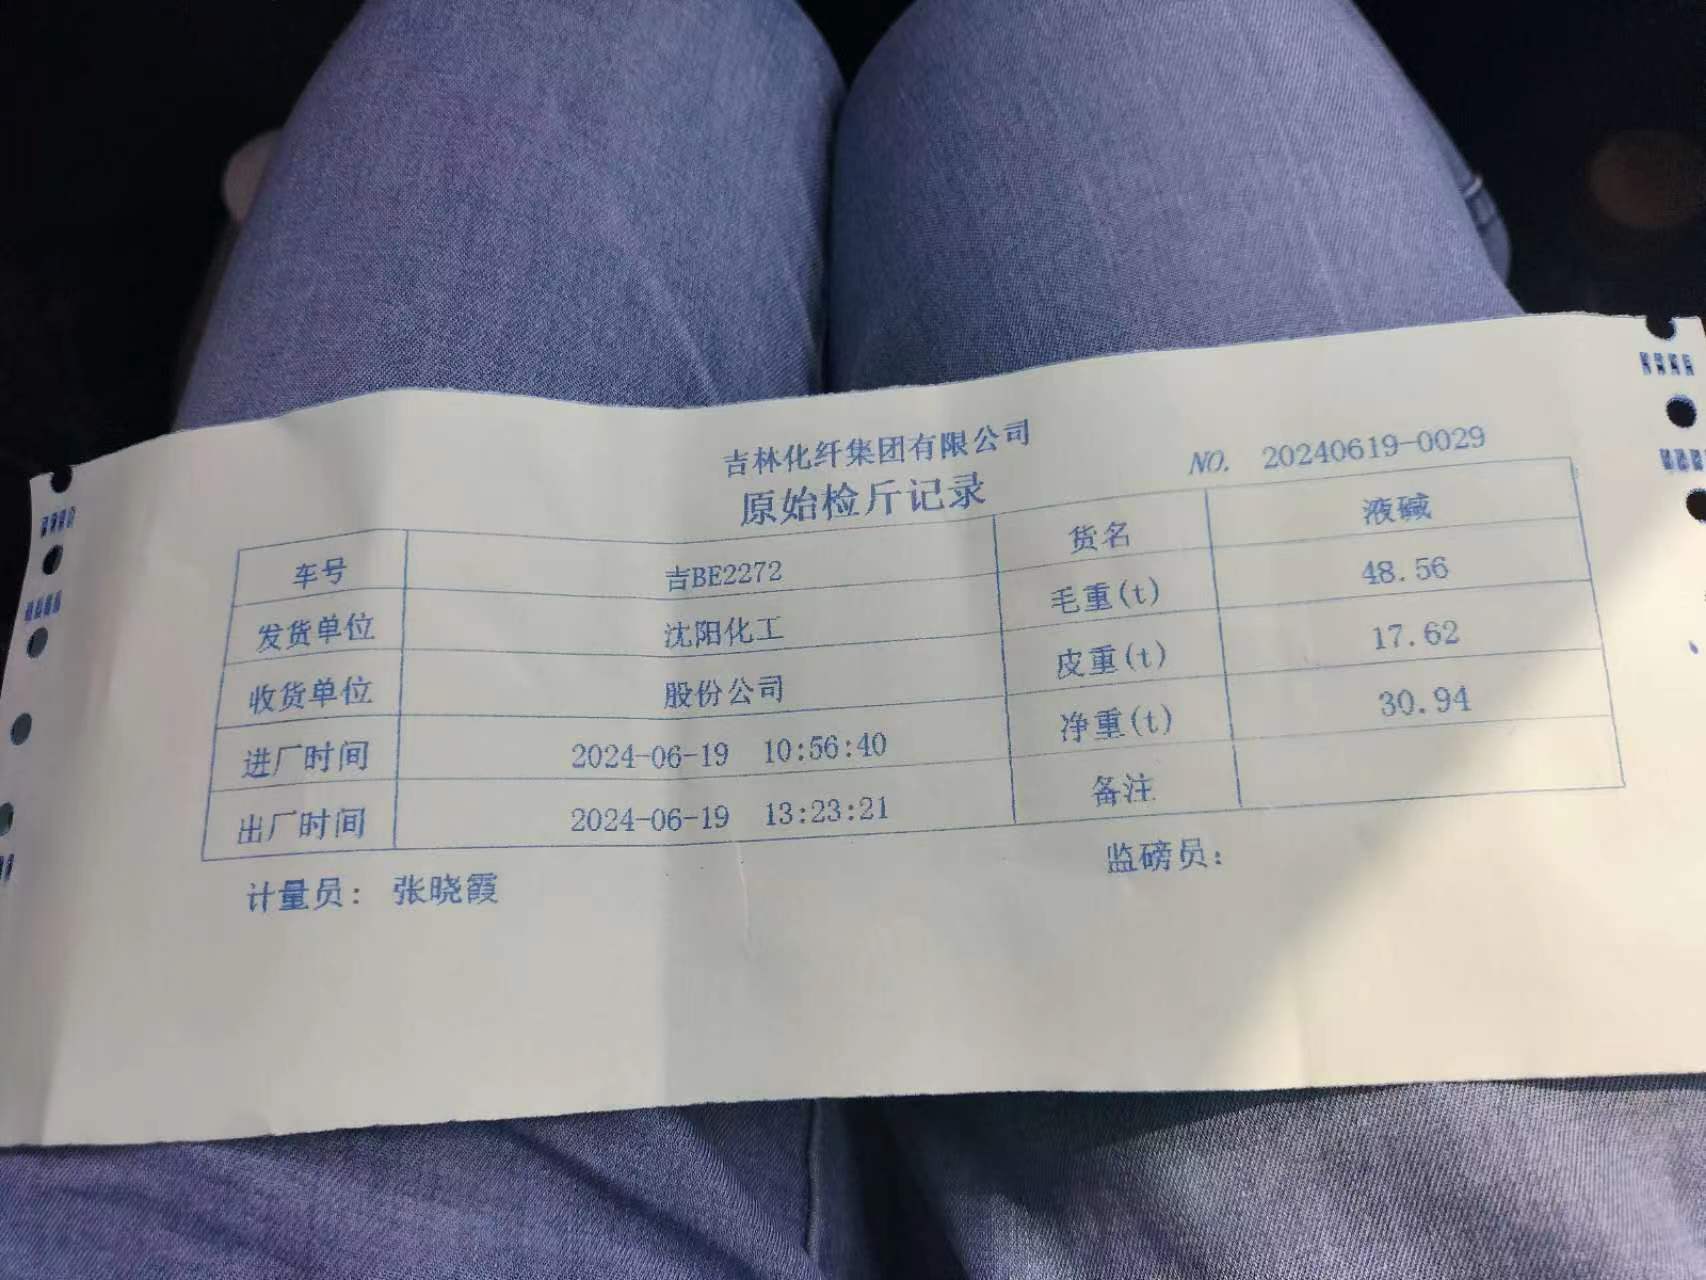 吉林化纤集团有限公司
原始检斤记录
NO. 20240619-0029
车号 吉BE2272 货名 液碱
发货单位 沈阳化工 毛重(t) 48.56
收货单位 股份公司 皮重(t) 17.62
进厂时间 2024-06-19 10:56:40 净重(t) 30.94
出厂时间 2024-06-19 13:23:21 备注
计量员： 张晓霞 监磅员：